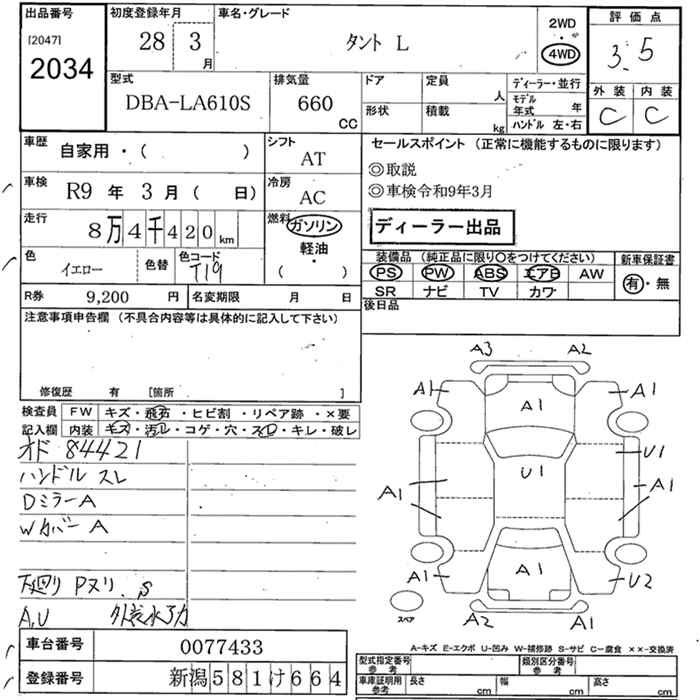 出品番号
[2047]
2034
初度登録年月
28 3
月
車名・グレード
タント L
2WD
・
4WD
評価点
3.5
外装 内装
C C
型式
DBA-LA610S
排気量
660
CC
ドア
定員
人
形状
積載
kg
ディーラー・並行
モデル
年式 年
ハンドル 左・右
車歴
自家用・( )
シフト
AT
車検
R9 年 3 月 ( 日)
冷房
AC
走行
8万4千420 km
燃料
ガソリン
軽油
・
( )
色
イエロー
色替
色コード
T19
R券 9,200 円
名変期限 月 日
セールスポイント (正常に機能するものに限ります)
◎取説
◎車検令和9年3月
ディーラー出品
装備品 (純正品に限り〇をつけてください)
PS PW ABS エアB AW
SR ナビ TV カワ
新車保証書
有・無
後日品
注意事項申告欄 (不具合内容等は具体的に記入して下さい)
修復歴 有 [箇所 ]
検査員
記入欄
FW キズ・飛石・ヒビ割・リペア跡・×要
内装 キズ・汚れ・コゲ・穴・スレ・キレ・破レ
オド 84421
ハンドル スレ
Dミラー A
Wカバー A
下廻り Pヌリ. S
A,U
A3 A2
A1 A1 A1
U1 U1
A1 A1
A1 A1 U2
A2 A2
スペア
A-キズ E-エクボ U-凹み W-補修跡 S-サビ C-腐食 ××-交換済
車台番号 0077433
登録番号 新潟581け664
型式指定番号
参考
類別区分番号
参考
車庫証明用
参考
長さ cm
幅 cm
高さ cm